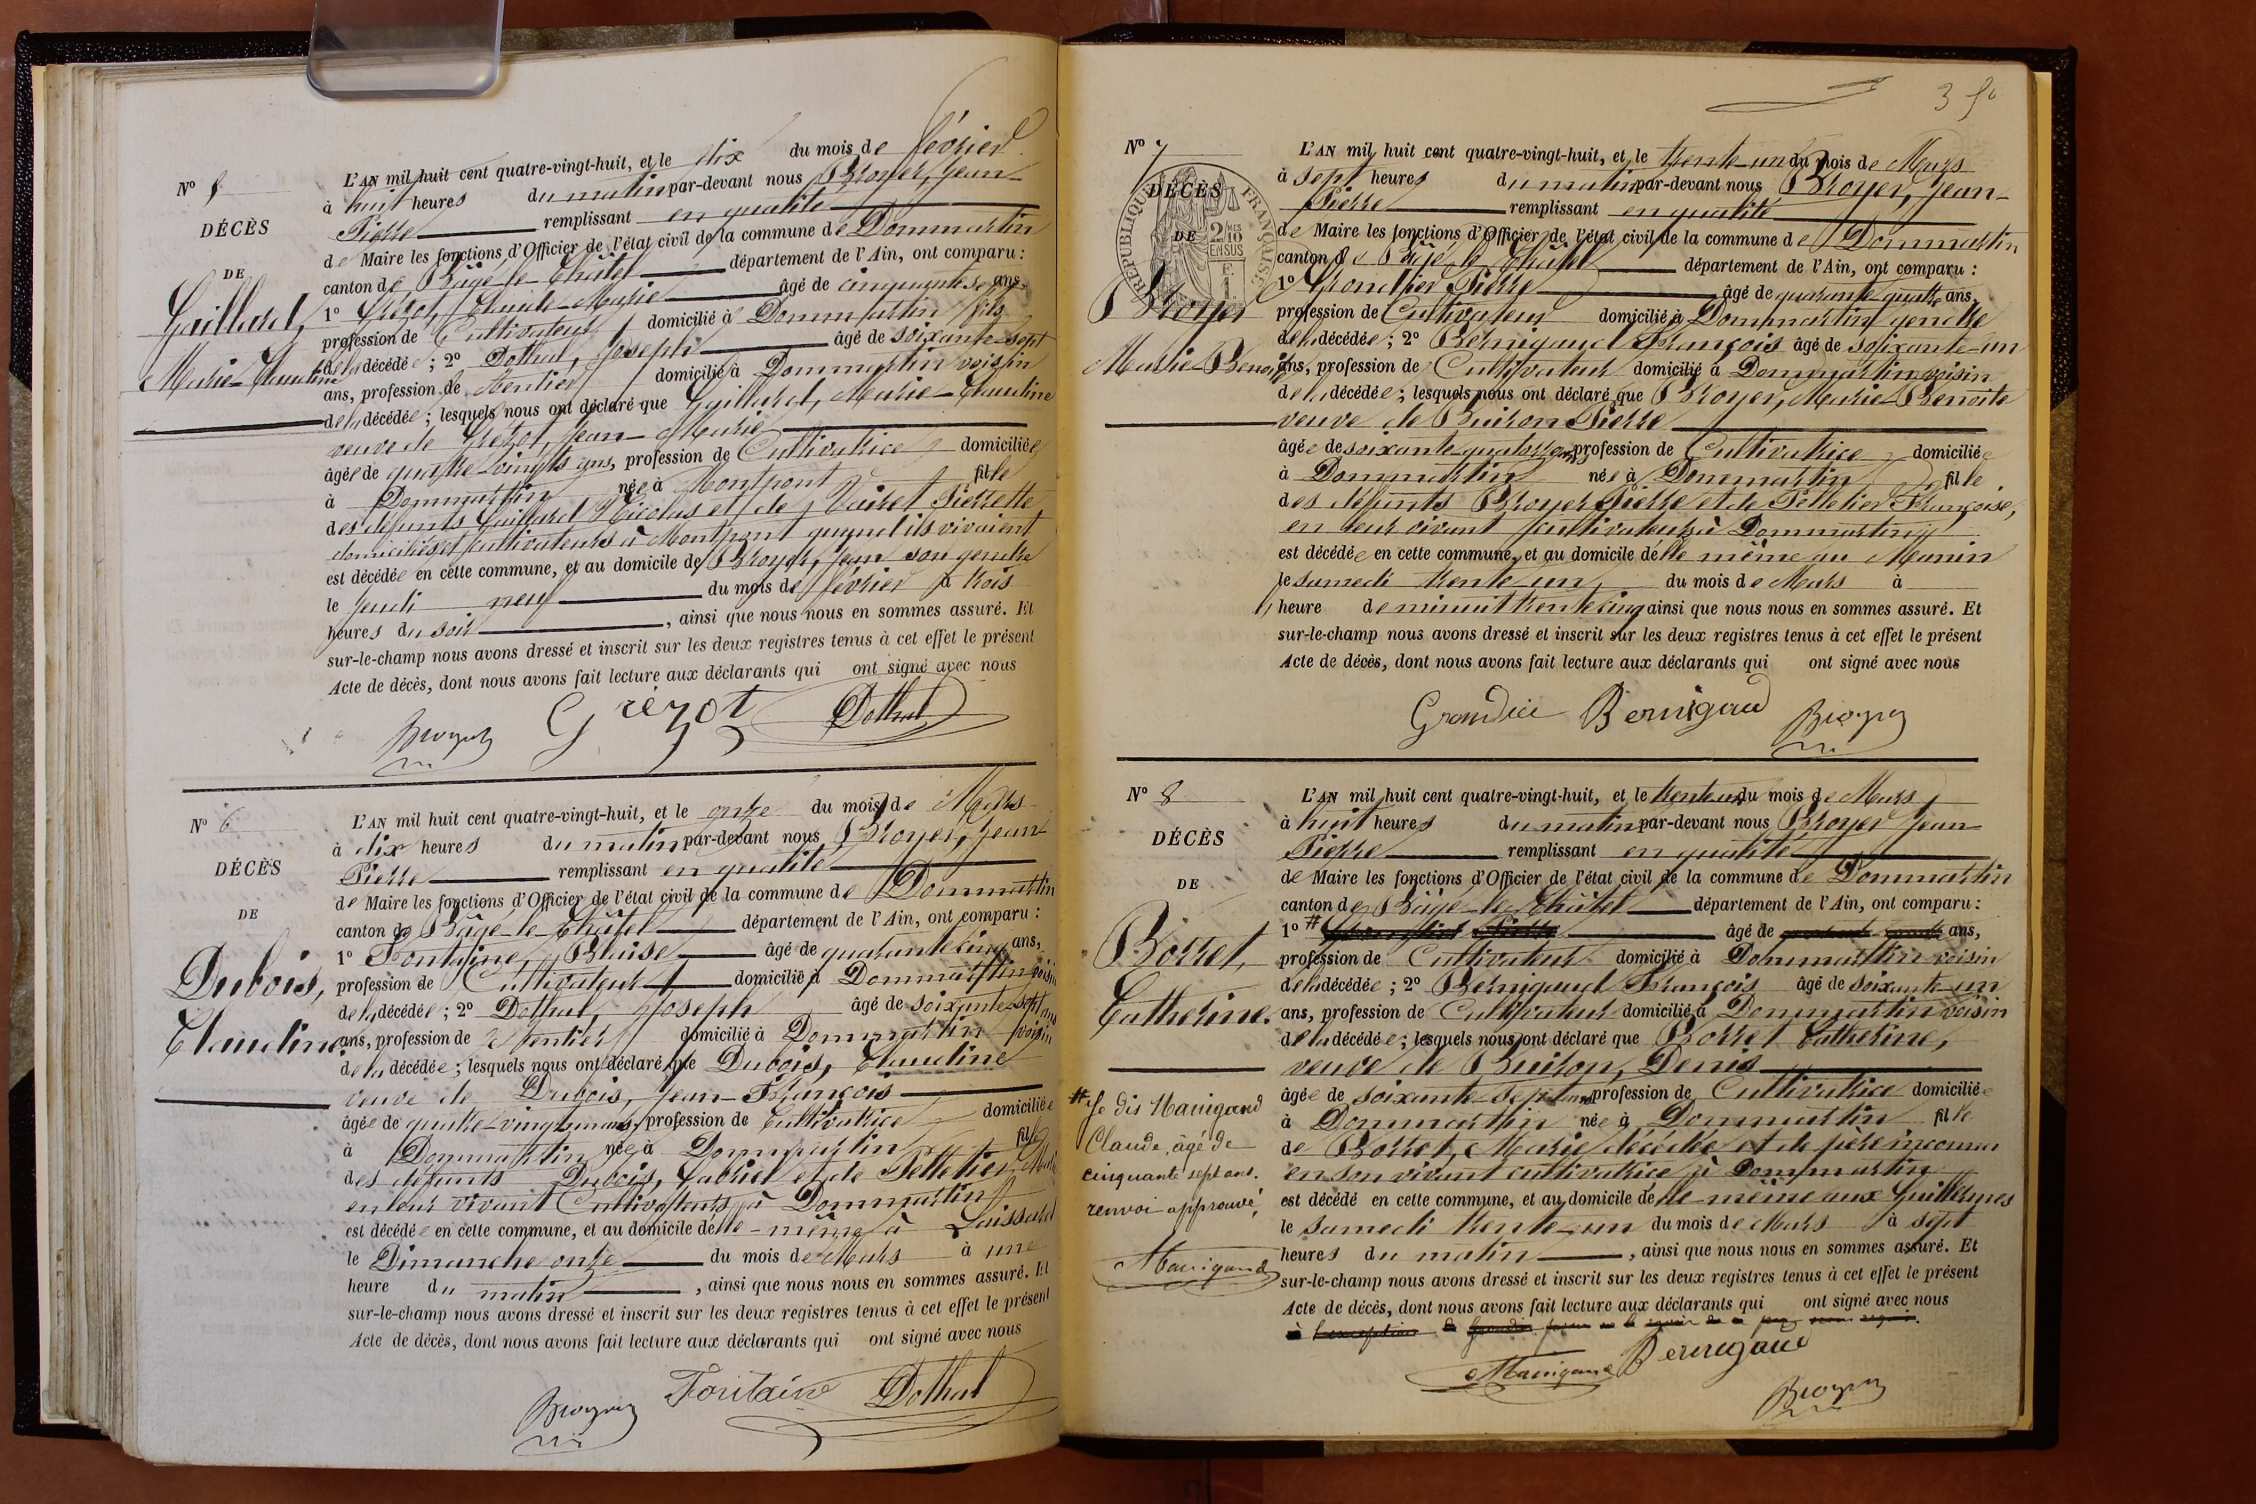 N° 5
DÉCÈS
DE
Gaillard,
Marie-Claudine
L'AN mil huit cent quatre-vingt-huit, et le dix du mois de février
à huit heures du matin par-devant nous Broyer, Jean-
Pierre remplissant en qualité
de Maire les fonctions d'Officier de l'état civil de la commune de Dommartin
canton de Bâgé-le-Châtel département de l'Ain, ont comparu :
1° Grézot, Claude-Marie âgé de cinquante ans,
profession de Cultivateur domicilié à Dommartin fils
de la décédée ; 2° Dothal, Joseph âgé de soixante-sept
ans, profession de Rentier domicilié à Dommartin voisin
de la décédée ; lesquels nous ont déclaré que Gaillard, Marie-Claudine
veuve de Grézot, Jean-Marie
âgée de quatre-vingts ans, profession de Cultivatrice domiciliée
à Dommartin née à Montpont fille
des défunts Gaillard Nicolas et de Vairet Pierrette
domiciliés et cultivateurs à Montpont quand ils vivaient
est décédée en cette commune, et au domicile de Broyer, Jean son gendre
le jeudi neuf du mois de février à trois
heures du soir , ainsi que nous nous en sommes assuré. Et
sur-le-champ nous avons dressé et inscrit sur les deux registres tenus à cet effet le présent
Acte de décès, dont nous avons fait lecture aux déclarants qui ont signé avec nous
Broyer Grézot Dothal
N° 6
DÉCÈS
DE
Dubois,
Claudine
L'AN mil huit cent quatre-vingt-huit, et le onze du mois de Mars
à dix heures du matin par-devant nous Broyer, Jean-
Pierre remplissant en qualité
de Maire les fonctions d'Officier de l'état civil de la commune de Dommartin
canton de Bâgé-le-Châtel département de l'Ain, ont comparu :
1° Fontaine, Blaise âgé de quarante cinq ans,
profession de Cultivateur domicilié à Dommartin voisin
de la décédée ; 2° Dothal, Joseph âgé de soixante-sept ans
ans, profession de Rentier domicilié à Dommartin voisin
de la décédée ; lesquels nous ont déclaré que Dubois, Claudine
veuve de Dubois, Jean-François
âgée de quatre-vingt ans, profession de Cultivatrice domiciliée
à Dommartin née à Dommartin fille
des défunts Dubois, Gabriel et de Pelletier,
en leur vivant Cultivateurs à Dommartin
est décédée en cette commune, et au domicile d'elle-même à Laissard
le Dimanche onze du mois de Mars à une
heure du matin , ainsi que nous nous en sommes assuré. Et
sur-le-champ nous avons dressé et inscrit sur les deux registres tenus à cet effet le présent
Acte de décès, dont nous avons fait lecture aux déclarants qui ont signé avec nous
Broyer Fontaine Dothal
3 fo
N° 7
DÉCÈS
DE
RÉPUBLIQUE FRANÇAISE
2 10
EN SUS
Broyer
Marie-Benoite
L'AN mil huit cent quatre-vingt-huit, et le trente-un du mois de Mars
à sept heures du matin par-devant nous Broyer, Jean-
Pierre remplissant en qualité
de Maire les fonctions d'Officier de l'état civil de la commune de Dommartin
canton de Bâgé-le-Châtel département de l'Ain, ont comparu :
1° Grandier Pierre âgé de quarante quatre ans,
profession de Cultivateur domicilié à Dommartin gendre
de la décédée ; 2° Bernigaud François âgé de soixante-un
ans, profession de Cultivateur domicilié à Dommartin voisin
de la décédée ; lesquels nous ont déclaré que Broyer, Marie-Benoite
veuve de Buiron Pierre
âgée de soixante-quatorze ans, profession de Cultivatrice domiciliée
à Dommartin née à Dommartin fille
des défunts Broyer Pierre et de Pelletier Françoise,
en leur vivant cultivateurs à Dommartin
est décédée en cette commune, et au domicile d'elle même au Manin
le samedi trente un du mois de Mars à
heure de minuit trente cinq ainsi que nous nous en sommes assuré. Et
sur-le-champ nous avons dressé et inscrit sur les deux registres tenus à cet effet le présent
Acte de décès, dont nous avons fait lecture aux déclarants qui ont signé avec nous
Grandier Bernigaud Broyer
N° 8
DÉCÈS
DE
Borret,
Catherine.
# Je dis Manigand
Claude, âgé de
cinquante sept ans.
renvoi approuvé,
Manigand
L'AN mil huit cent quatre-vingt-huit, et le trente un du mois de Mars
à huit heures du matin par-devant nous Broyer Jean-
Pierre remplissant en qualité
de Maire les fonctions d'Officier de l'état civil de la commune de Dommartin
canton de Bâgé-le-Châtel département de l'Ain, ont comparu :
1° # âgé de ans,
profession de Cultivateur domicilié à Dommartin voisin
de la décédée ; 2° Bernigaud François âgé de soixante-un
ans, profession de Cultivateur domicilié à Dommartin voisin
de la décédée ; lesquels nous ont déclaré que Borret Catherine,
veuve de Buiron, Denis
âgée de soixante-sept ans, profession de Cultivatrice domiciliée
à Dommartin née à Dommartin fille
de Borret, Marie décédée et de père inconnu
en son vivant cultivatrice à Dommartin
est décédé en cette commune, et au domicile de elle-même aux Guillermes
le samedi trente-un du mois de Mars à sept
heures du matin , ainsi que nous nous en sommes assuré. Et
sur-le-champ nous avons dressé et inscrit sur les deux registres tenus à cet effet le présent
Acte de décès, dont nous avons fait lecture aux déclarants qui ont signé avec nous
Manigand Bernigaud
Broyer